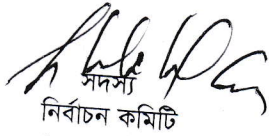 সদস্য
নির্বাচন কমিটি